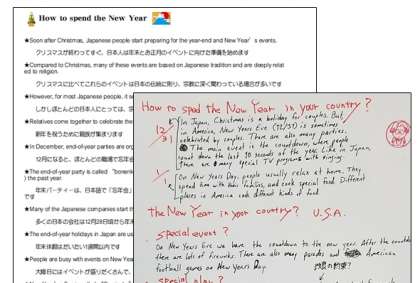 How to spend the New Year
★Soon after Christmas, Japanese people start preparing for the year-end and New Year's events.
クリスマスが終わってすぐ、日本人は年末とお正月のイベントに向けた準備を始めます
★Compared to Christmas, many of these events are based on Japanese tradition and are deeply related to religion.
クリスマスに比べてこれらのイベントは日本の伝統に則り、宗教に深く関わっている場合が多いです
★However, for most Japanese people, it
しかしほとんどの日本人にとっては、
★Relatives come together to celebrate the
新年を祝うために親族が集まります
★In December, end-of-year parties are
12月になると、ほとんどの職場で忘年会
★The end-of-year party is called "bonenk
) the past year.
年末パーティーは、日本語で「忘年会」
です
★Many of the Japanese companies start th
多くの日本の会社は12月28日から年末
★The end-of-year holidays in Japan are us
年末休暇はだいたい1週間以内です
★People are busy with events on New Year
大晦日にはイベントが盛りだくさんで、
How to spend the New Year in your country?
12/31
In Japan, Christmas is a holiday for couples. But
in America, New Years Eve (12/31) is sometimes
celebrated by couples. There are also many parties.
The main event is the countdown, where people
count down the last 10 seconds of the year. Like in Japan,
there are many special TV programs with singing.
1/1
On New Years Day, people usually relax at home. They
spend time with their families, and cook special food. Different
places in America cook different kinds of food.
the New Year in your country? U.S.A.
special event?
On New Years Eve we have the countdown to the new year. After the countdown
there are lots of fireworks. There are also many parades and American
football games on New Years Day.
special play?